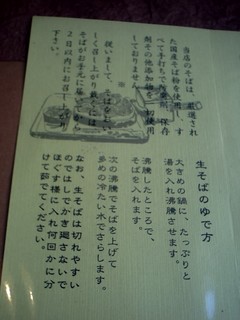 当店のそばは、厳選され
た国産そば粉を使用
べて手打ちで
剤その他添加物
しておりません
従いまして、そばをおい
しく召し上がり頂くには
そばがお手元に届いてから
2日以内にお召し上がり
下さい。
生そばのゆで方
大きめの鍋に、たっぷりと
湯を入れ沸騰させます。
沸騰したところで、
そばを入れます。
次の沸騰でそばを上げて
多めの冷たい水でさらします。
なお、生そばは切れやすい
のではしでかき廻さないで
ほぐす様に入れ何回かに分
けて茹でてください。